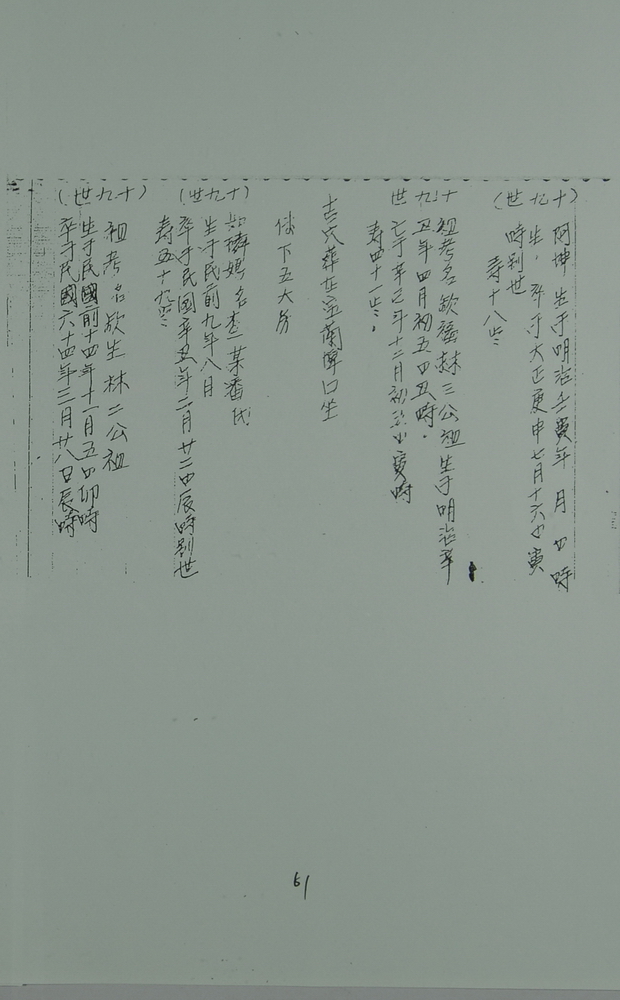 (十九世)
阿坤 生于明治壬寅年 月 日 時
生，卒于大正庚申七月十六日寅
時别世
寿十八岁
十九世
祖考名欽 林三公祖 生于明治辛
丑年四月初五日丑時。
亡于辛巳年十二月初 日寅時
寿四十一岁。
吉穴葬在宜蘭 口坐
傳下五大房
(十九世)
妣 媽名查某潘氏
生于民前九年八月
卒于民国辛丑年二月廿二日辰時别世
寿五十九岁
(十九世)
祖考名欽生林二公祖
生于民國前十四年十一月五日卯時
卒于民國六十四年三月廿八日辰時
61